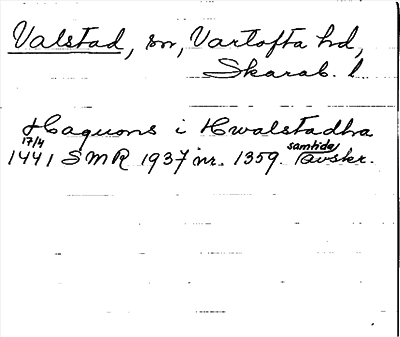 Valstad, sn, Vartofta hd,
Skarab. l
Haquons i Hwalstadha
17/4
1441 SMR 1937 nr. 1359. samtida avskr.